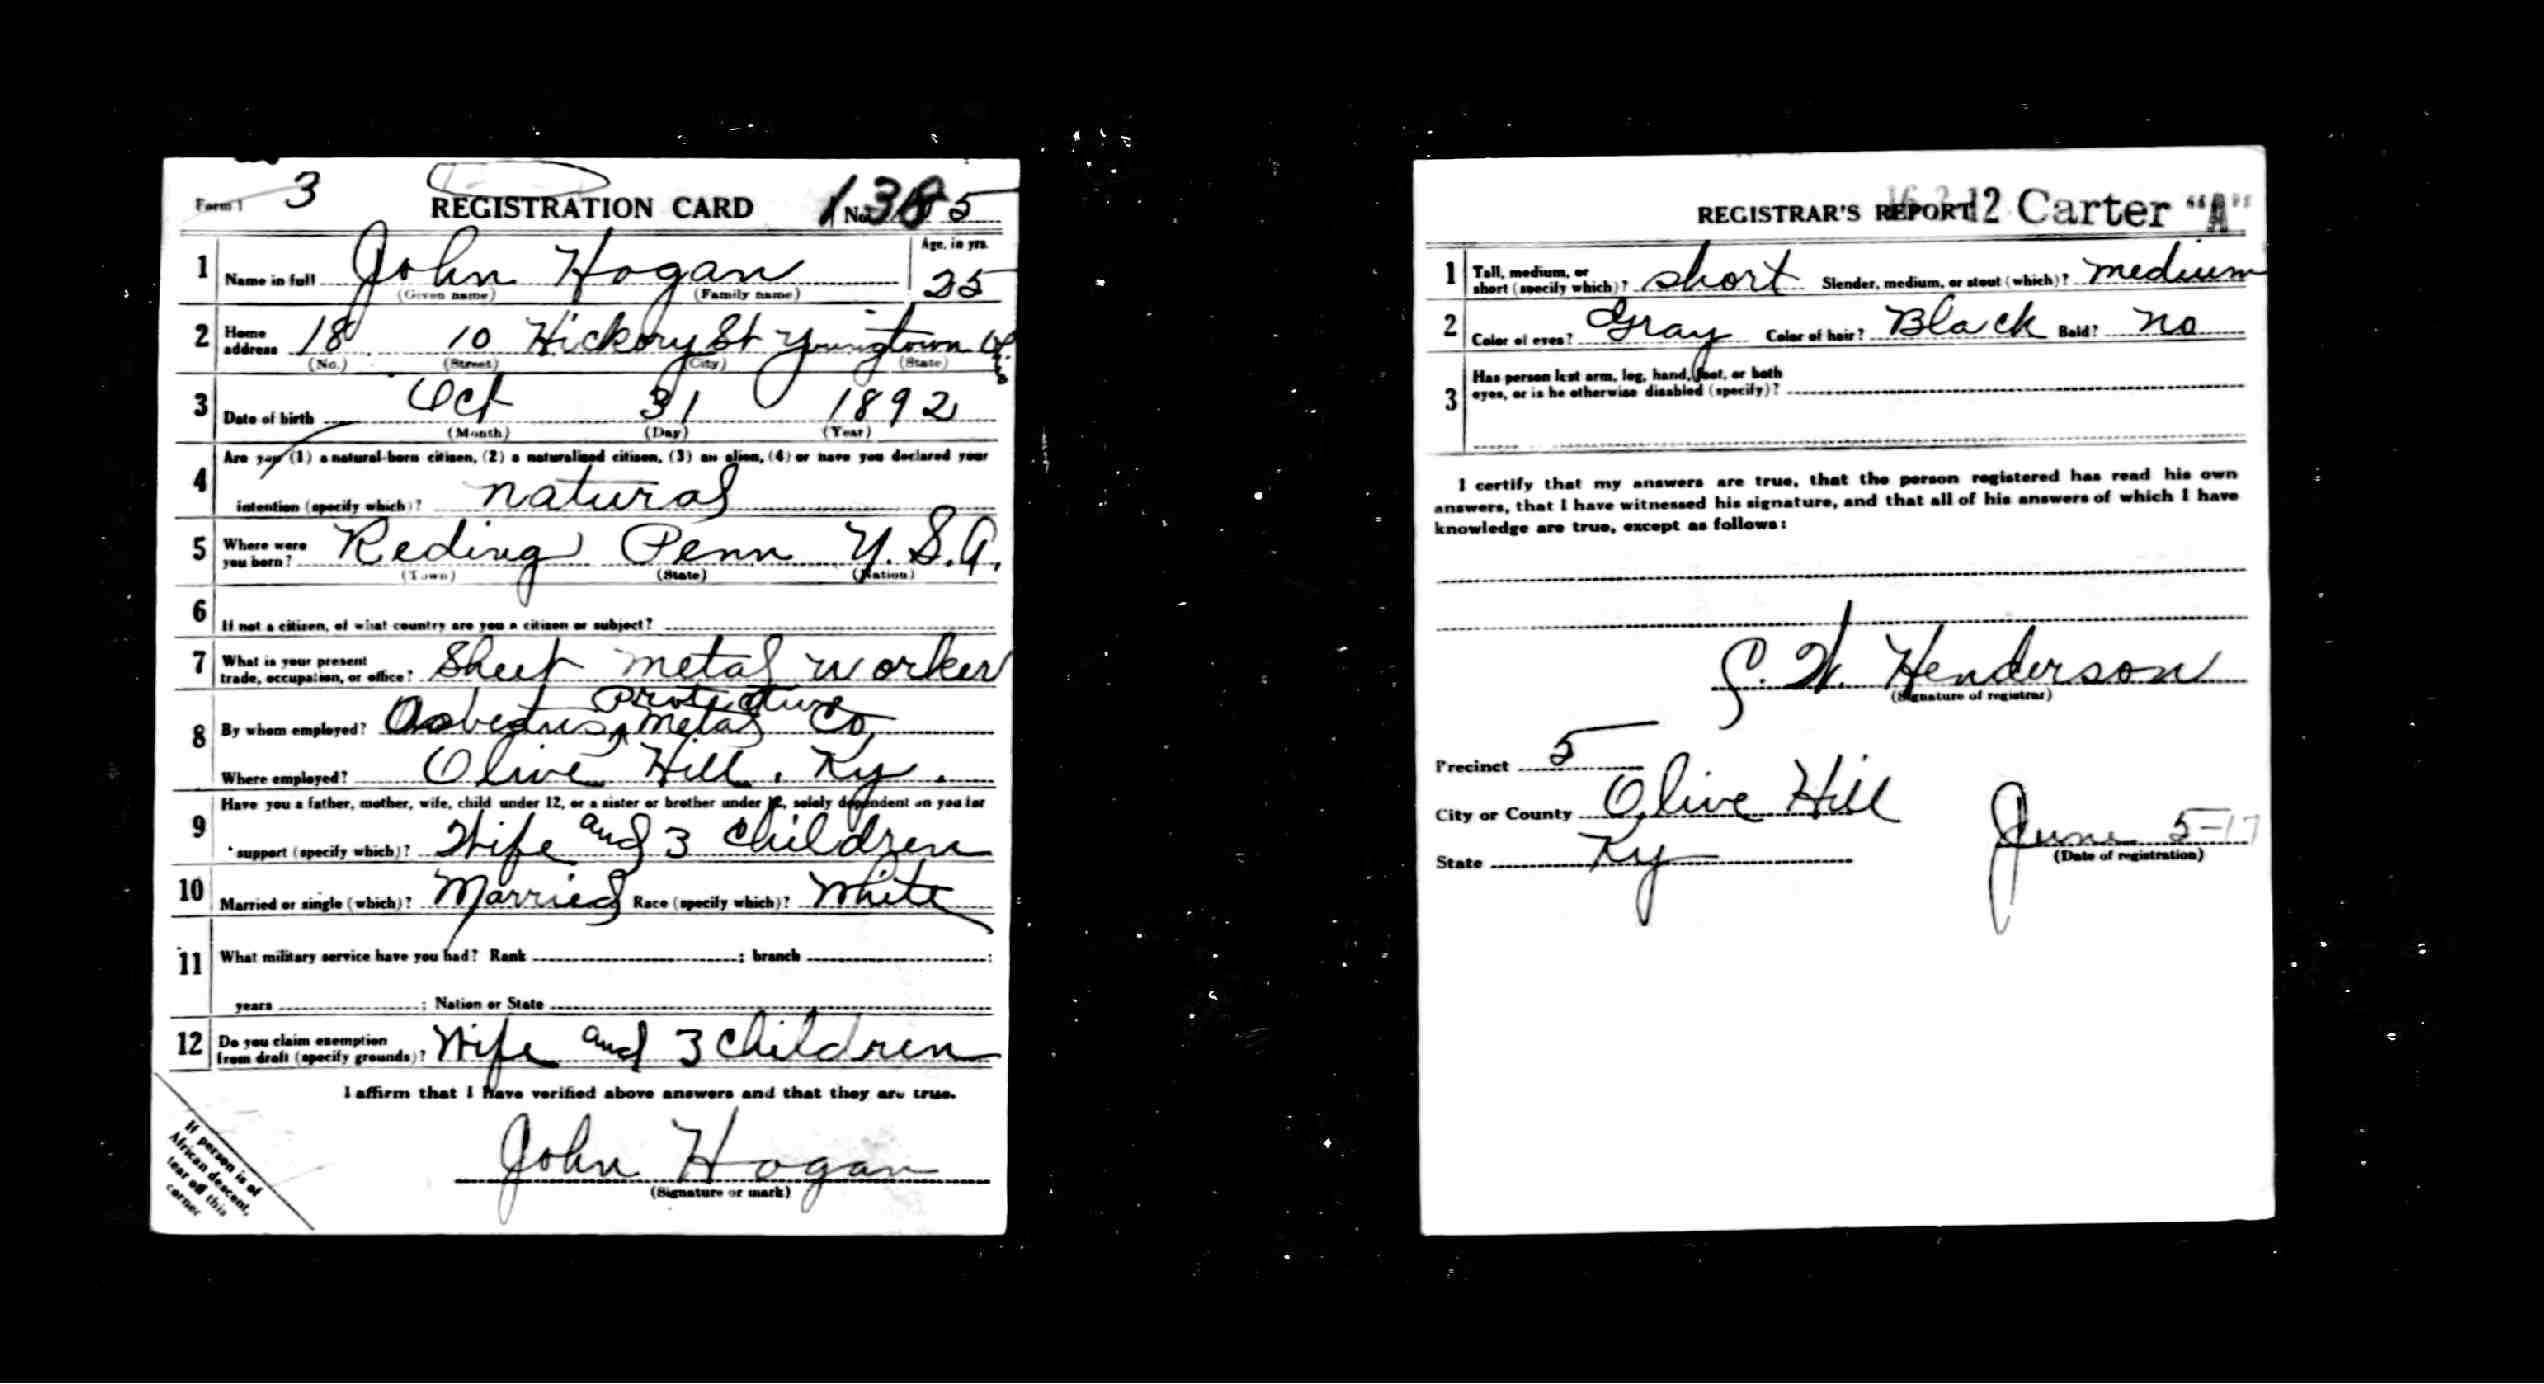 Form 1 3 REGISTRATION CARD No. 1385
1 Name in full John Hogan Age, in yrs. 25
(Given name) (Family name)
2 Home address 18 10 Hickory St Youngtown
(No.) (Street) (City) (State)
3 Date of birth Oct 31 1892
(Month) (Day) (Year)
4 Are you (1) a natural-born citizen, (2) a naturalized citizen, (3) an alien, (4) or have you declared your
intention (specify which)? natural
5 Where were you born? Reding Penn U.S.A.
(Town) (State) (Nation)
6 If not a citizen, of what country are you a citizen or subject?
7 What is your present trade, occupation, or office? Sheet metal worker
8 By whom employed? Asbestus Protective Metal Co
Where employed? Olive Hill, Ky.
9 Have you a father, mother, wife, child under 12, or a sister or brother under 12, solely dependent on you for
support (specify which)? Wife and 3 children
10 Married or single (which)? Married Race (specify which)? White
11 What military service have you had? Rank ; branch ;
years ; Nation or State
12 Do you claim exemption from draft (specify grounds)? Wife and 3 children
I affirm that I have verified above answers and that they are true.
John Hogan
(Signature or mark)
If person is of
African descent,
tear off this
corner
REGISTRAR'S REPORT 12 Carter "A"
1 Tall, medium, or short (specify which)? short Slender, medium, or stout (which)? medium
2 Color of eyes? Gray Color of hair? Black Bald? no
3 Has person lost arm, leg, hand, foot, or both
eyes, or is he otherwise disabled (specify)?
I certify that my answers are true, that the person registered has read his own
answers, that I have witnessed his signature, and that all of his answers of which I have
knowledge are true, except as follows:
S. W. Henderson
(Signature of registrar)
Precinct 5
City or County Olive Hill
State Ky
June 5-17
(Date of registration)